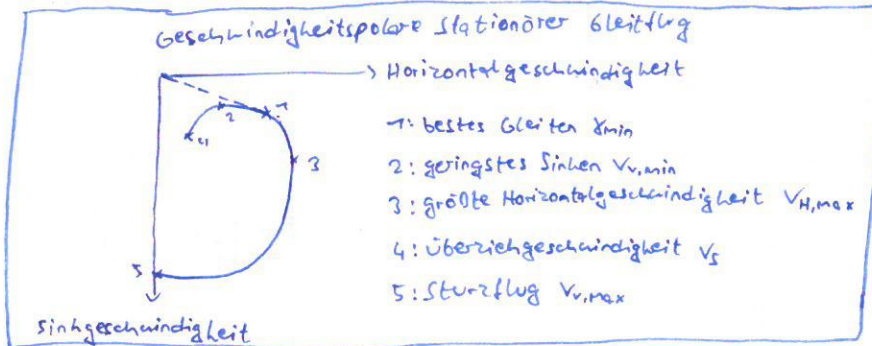 Geschwindigkeitspolare stationärer Gleitflug
Horizontalgeschwindigkeit
1
2
4
3
5
1: bestes Gleiten γmin
2: geringstes Sinken Vv,min
3: größte Horizontalgeschwindigkeit VH,max
4: Überziehgeschwindigkeit Vs
5: Sturzflug Vv,max
Sinkgeschwindigkeit